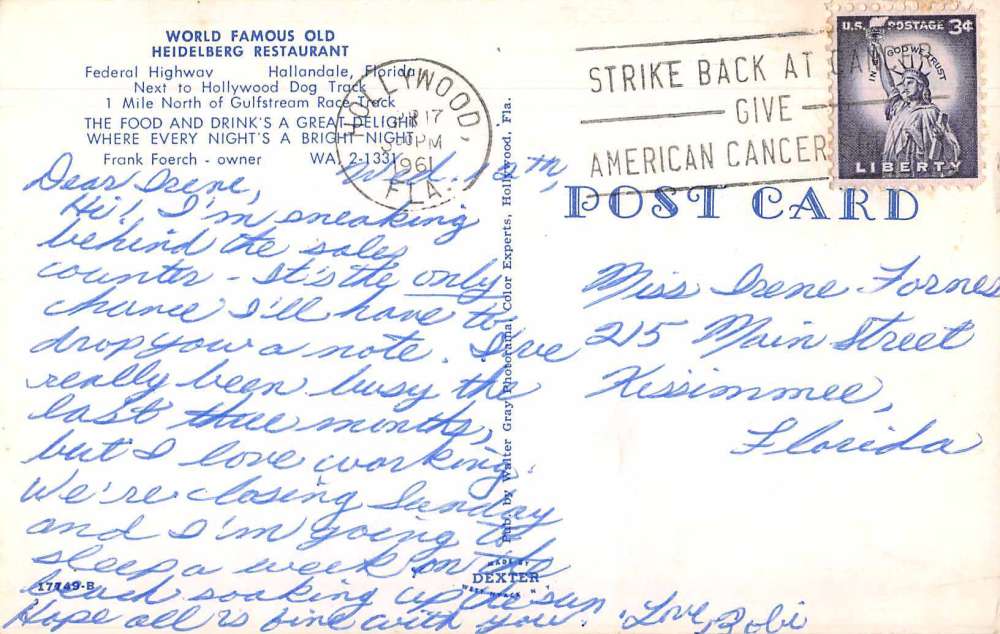 WORLD FAMOUS OLD
HEIDELBERG RESTAURANT
Federal Highway Hallandale, Florida
Next to Hollywood Dog Track
1 Mile North of Gulfstream Race Track
THE FOOD AND DRINK'S A GREAT DELIGHT
WHERE EVERY NIGHT'S A BRIGHT NIGHT.
Frank Foerch - owner WA. 2-1331
HOLLYWOOD,
17
PM
1961
FLA.
STRIKE BACK AT CANCER
GIVE
AMERICAN CANCER
U.S. POSTAGE 3¢
IN GOD WE TRUST
LIBERTY
POST CARD
Wed.
Dear Irene,
Hi! I'm sneaking
behind the sales
counter - It's the only
chance I'll have to
drop you a note. I've
really been busy the
last three months,
but I love working.
We're closing Sunday
and I'm going to
sleep a week on the
beach soaking up the sun.
Hope all is fine with you. Love, Bobi
Miss Irene Fornes
215 Main Street
Kissimmee,
Florida
Pub. by Walter Gray Photorama, Color Experts, Hollywood, Fla.
MADE BY
DEXTER
WEST NYACK N
17749-B